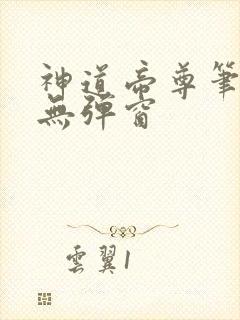 神道帝尊筆
無彈窗
雲翼1